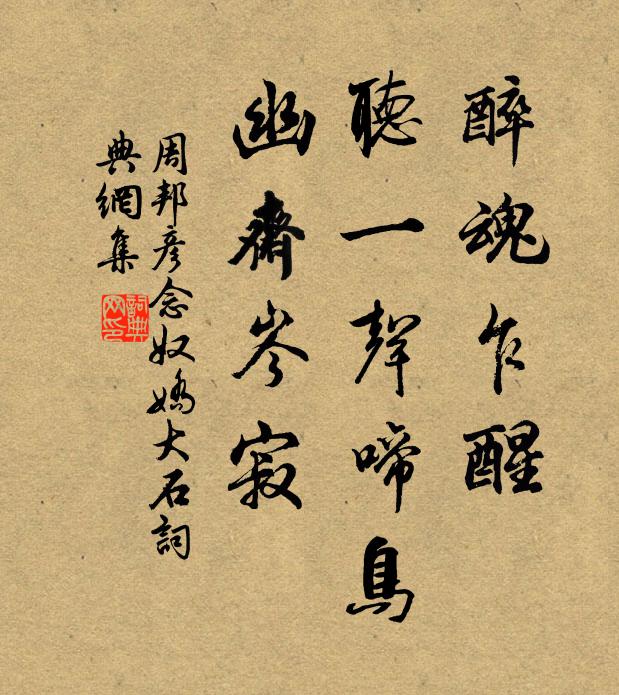 醉魂乍醒
聽一聲啼鳥
幽齋岑寂
周邦彥念奴嬌大石詞
典網集
詞典
网印